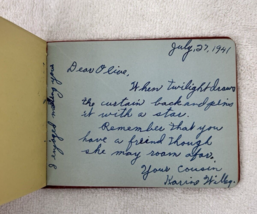 July, 27, 1941
Dear Olive,
When twilight draws
the curtain back and pins
it with a star.
Remember that you
have a friend though
she may roam afar.
Your Cousin
I enjoyed meeting you